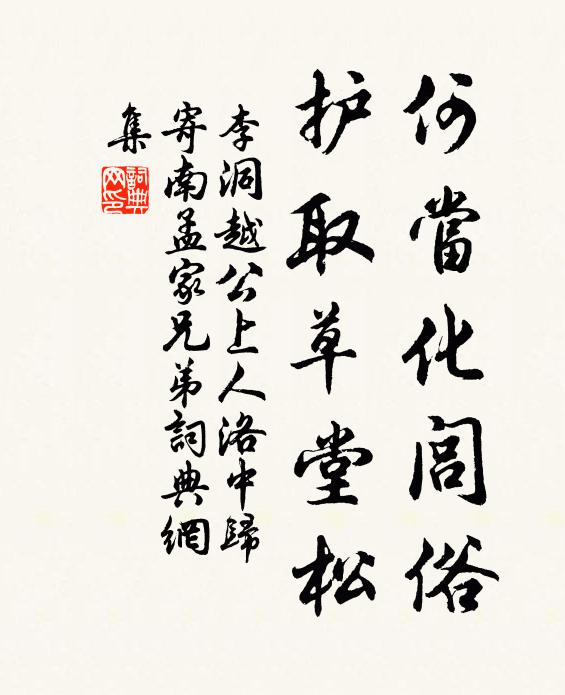 何當化閭俗
护取草堂松
李洞越公上人洛中歸
寄南孟家兄弟詞典網
集
詞典网印